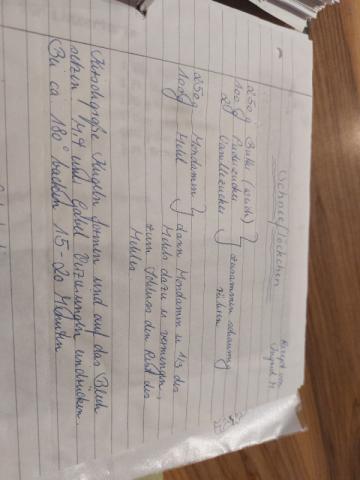 Schneeflöckchen
Rezept von
Ingrid H.
250g Butter (weich)
100g Puderzucker
2 Vanillezucker
zusammen schaumig
rühren
250g Mondamin
100g Mehl
dann Mondamin u 1/3 des
Mehls dazu u vermengen,
zum Schluss den Rest des
Mehles
Kirschgroße Kugeln formen und auf das Blech
setzen, mit Gabel Verzierungen eindrücken.
Bei ca 180° backen 15-20 Minuten